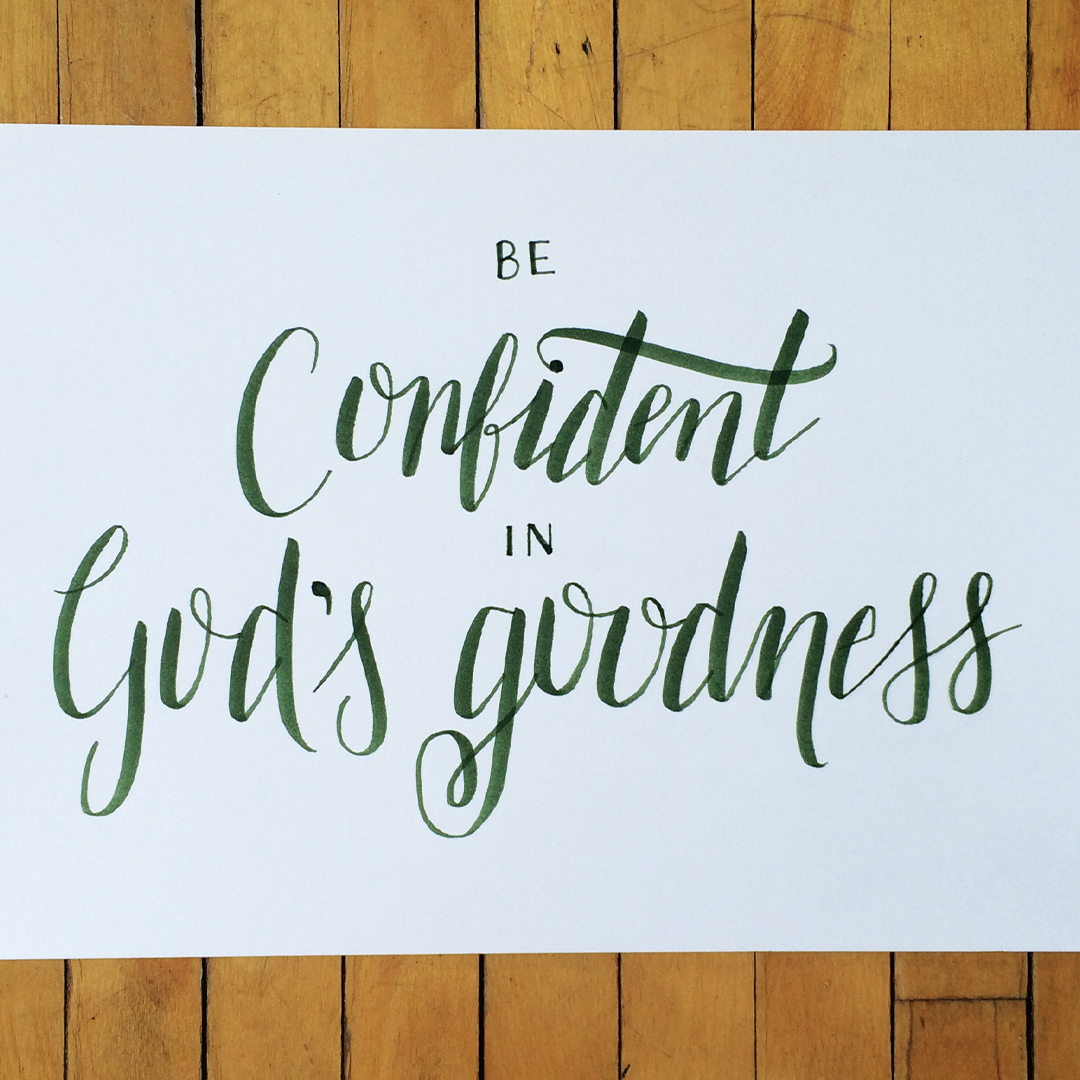 BE
Confident
IN
God's goodness